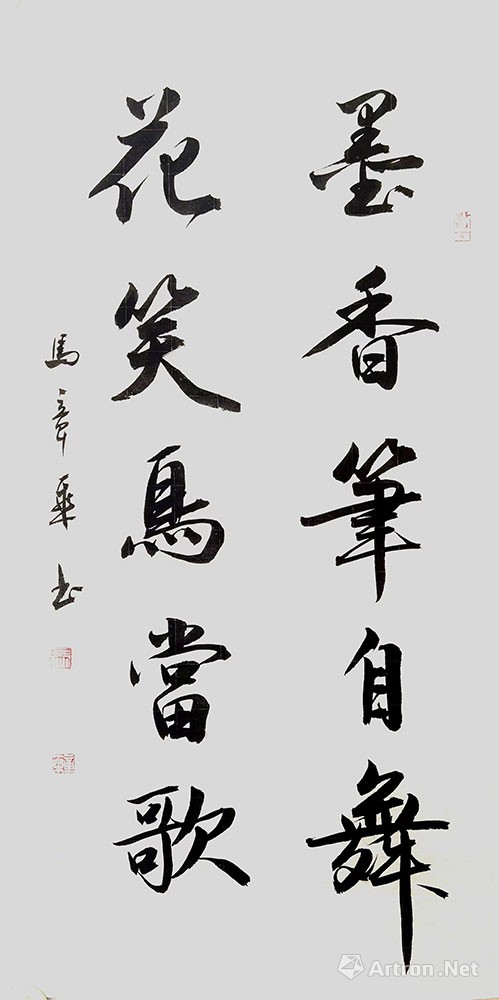 墨香筆自舞
花笑鳥當歌
馬章乘书
Artron.Net